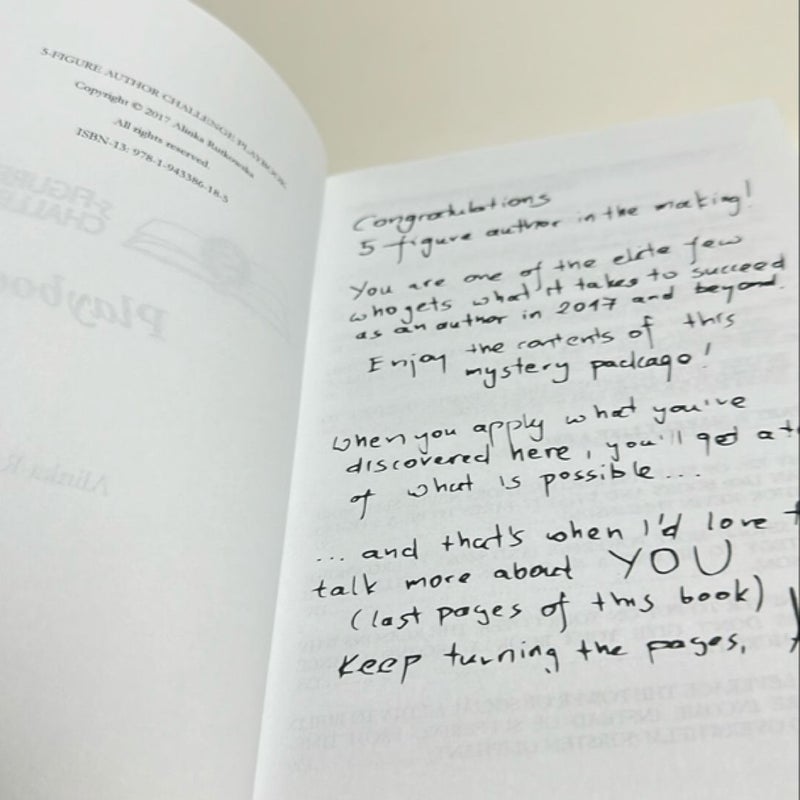 5-FIGURE AUTHOR CHALLENGE PLAYBOOK
Copyright © 2017 Alinka Rutkowska
All rights reserved.
ISBN-13: 978-1-943386-18-5
Congratulations
5 figure author in the making!
You are one of the elite few
who gets what it takes to succeed
as an author in 2017 and beyond.
Enjoy the contents of this
mystery package!
When you apply what you've
discovered here, you'll get a
of what is possible...
... and that's when I'd love
talk more about YOU
(last pages of this book)
Keep turning the pages,
Playbook